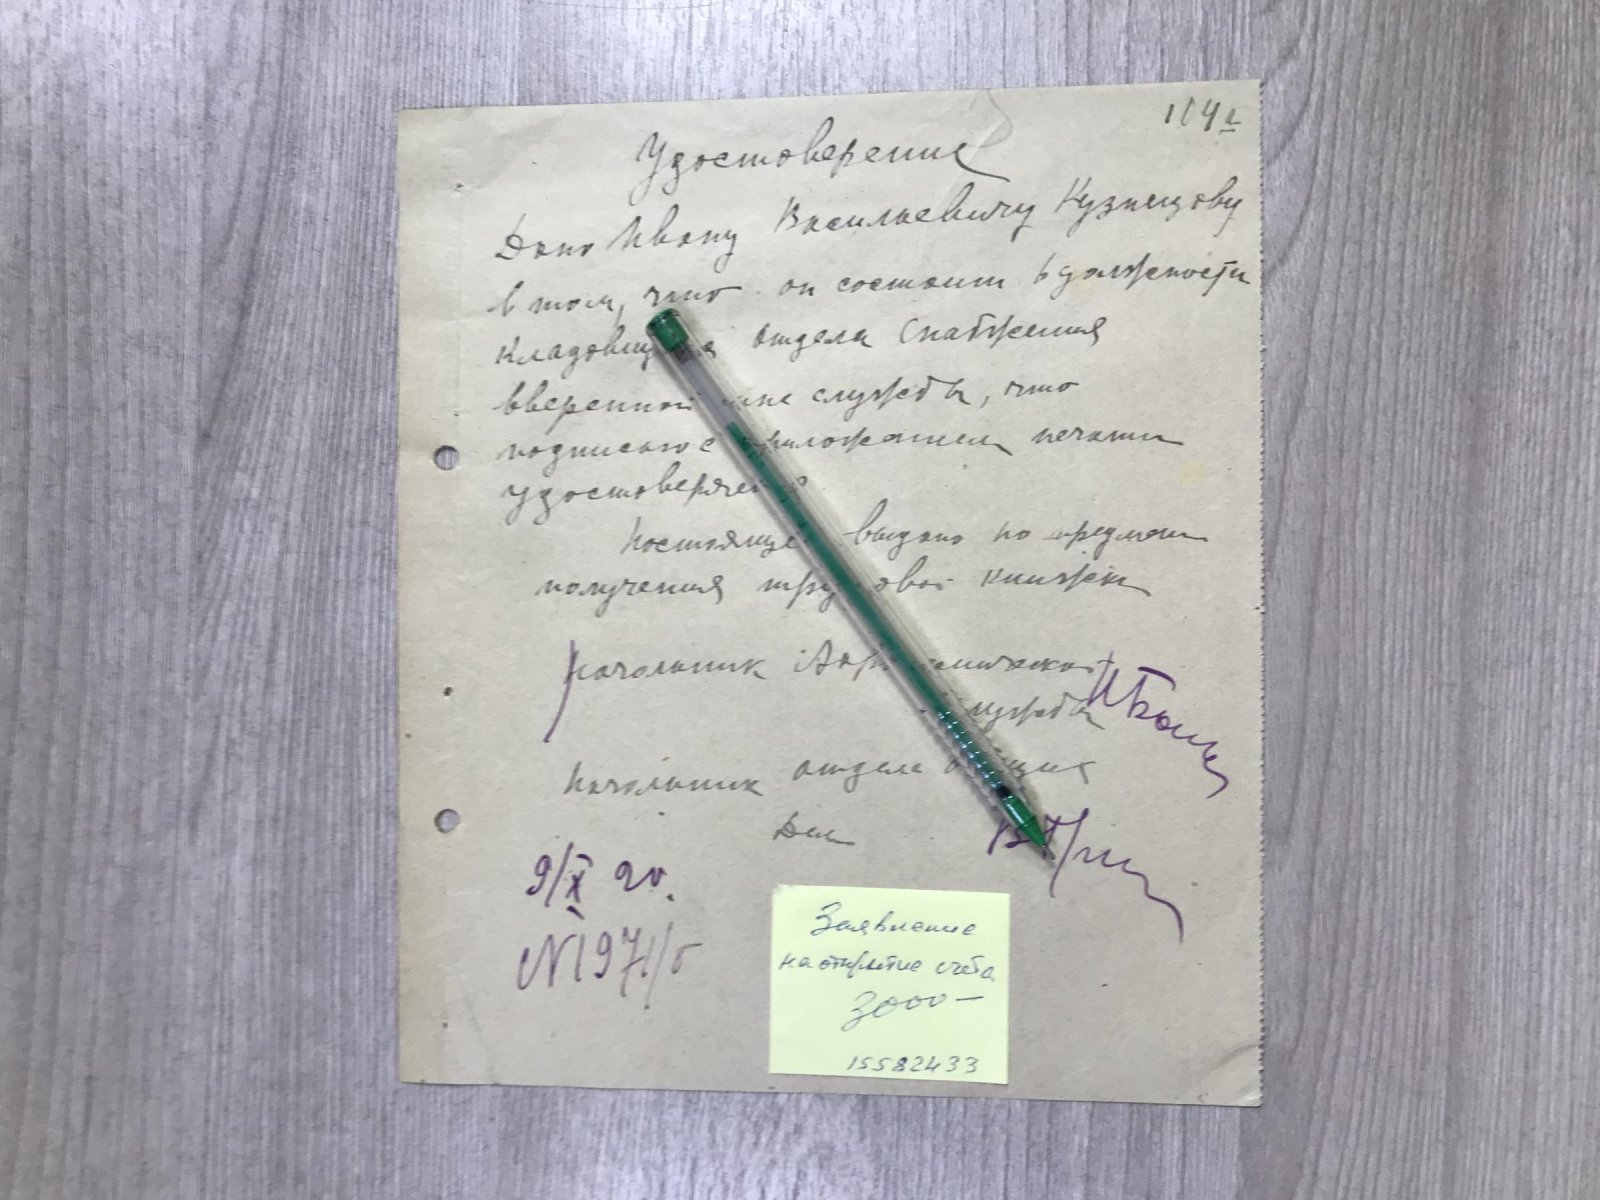 104
Удостоверение
Дано Ивану Васильевичу Кузнецову
в том, что он состоит в должности
кладовщ а отдела Снабжения
вверенной мне службы, что
подписью с приложением печати
удостоверяе
Настояще выдано на предмет
получения тру овой книжки
Начальник
службы
Начальник отдела общих
Дел
9/X 20.
N 1971/б
Заявление
на открытие счета
3000 —
15582433